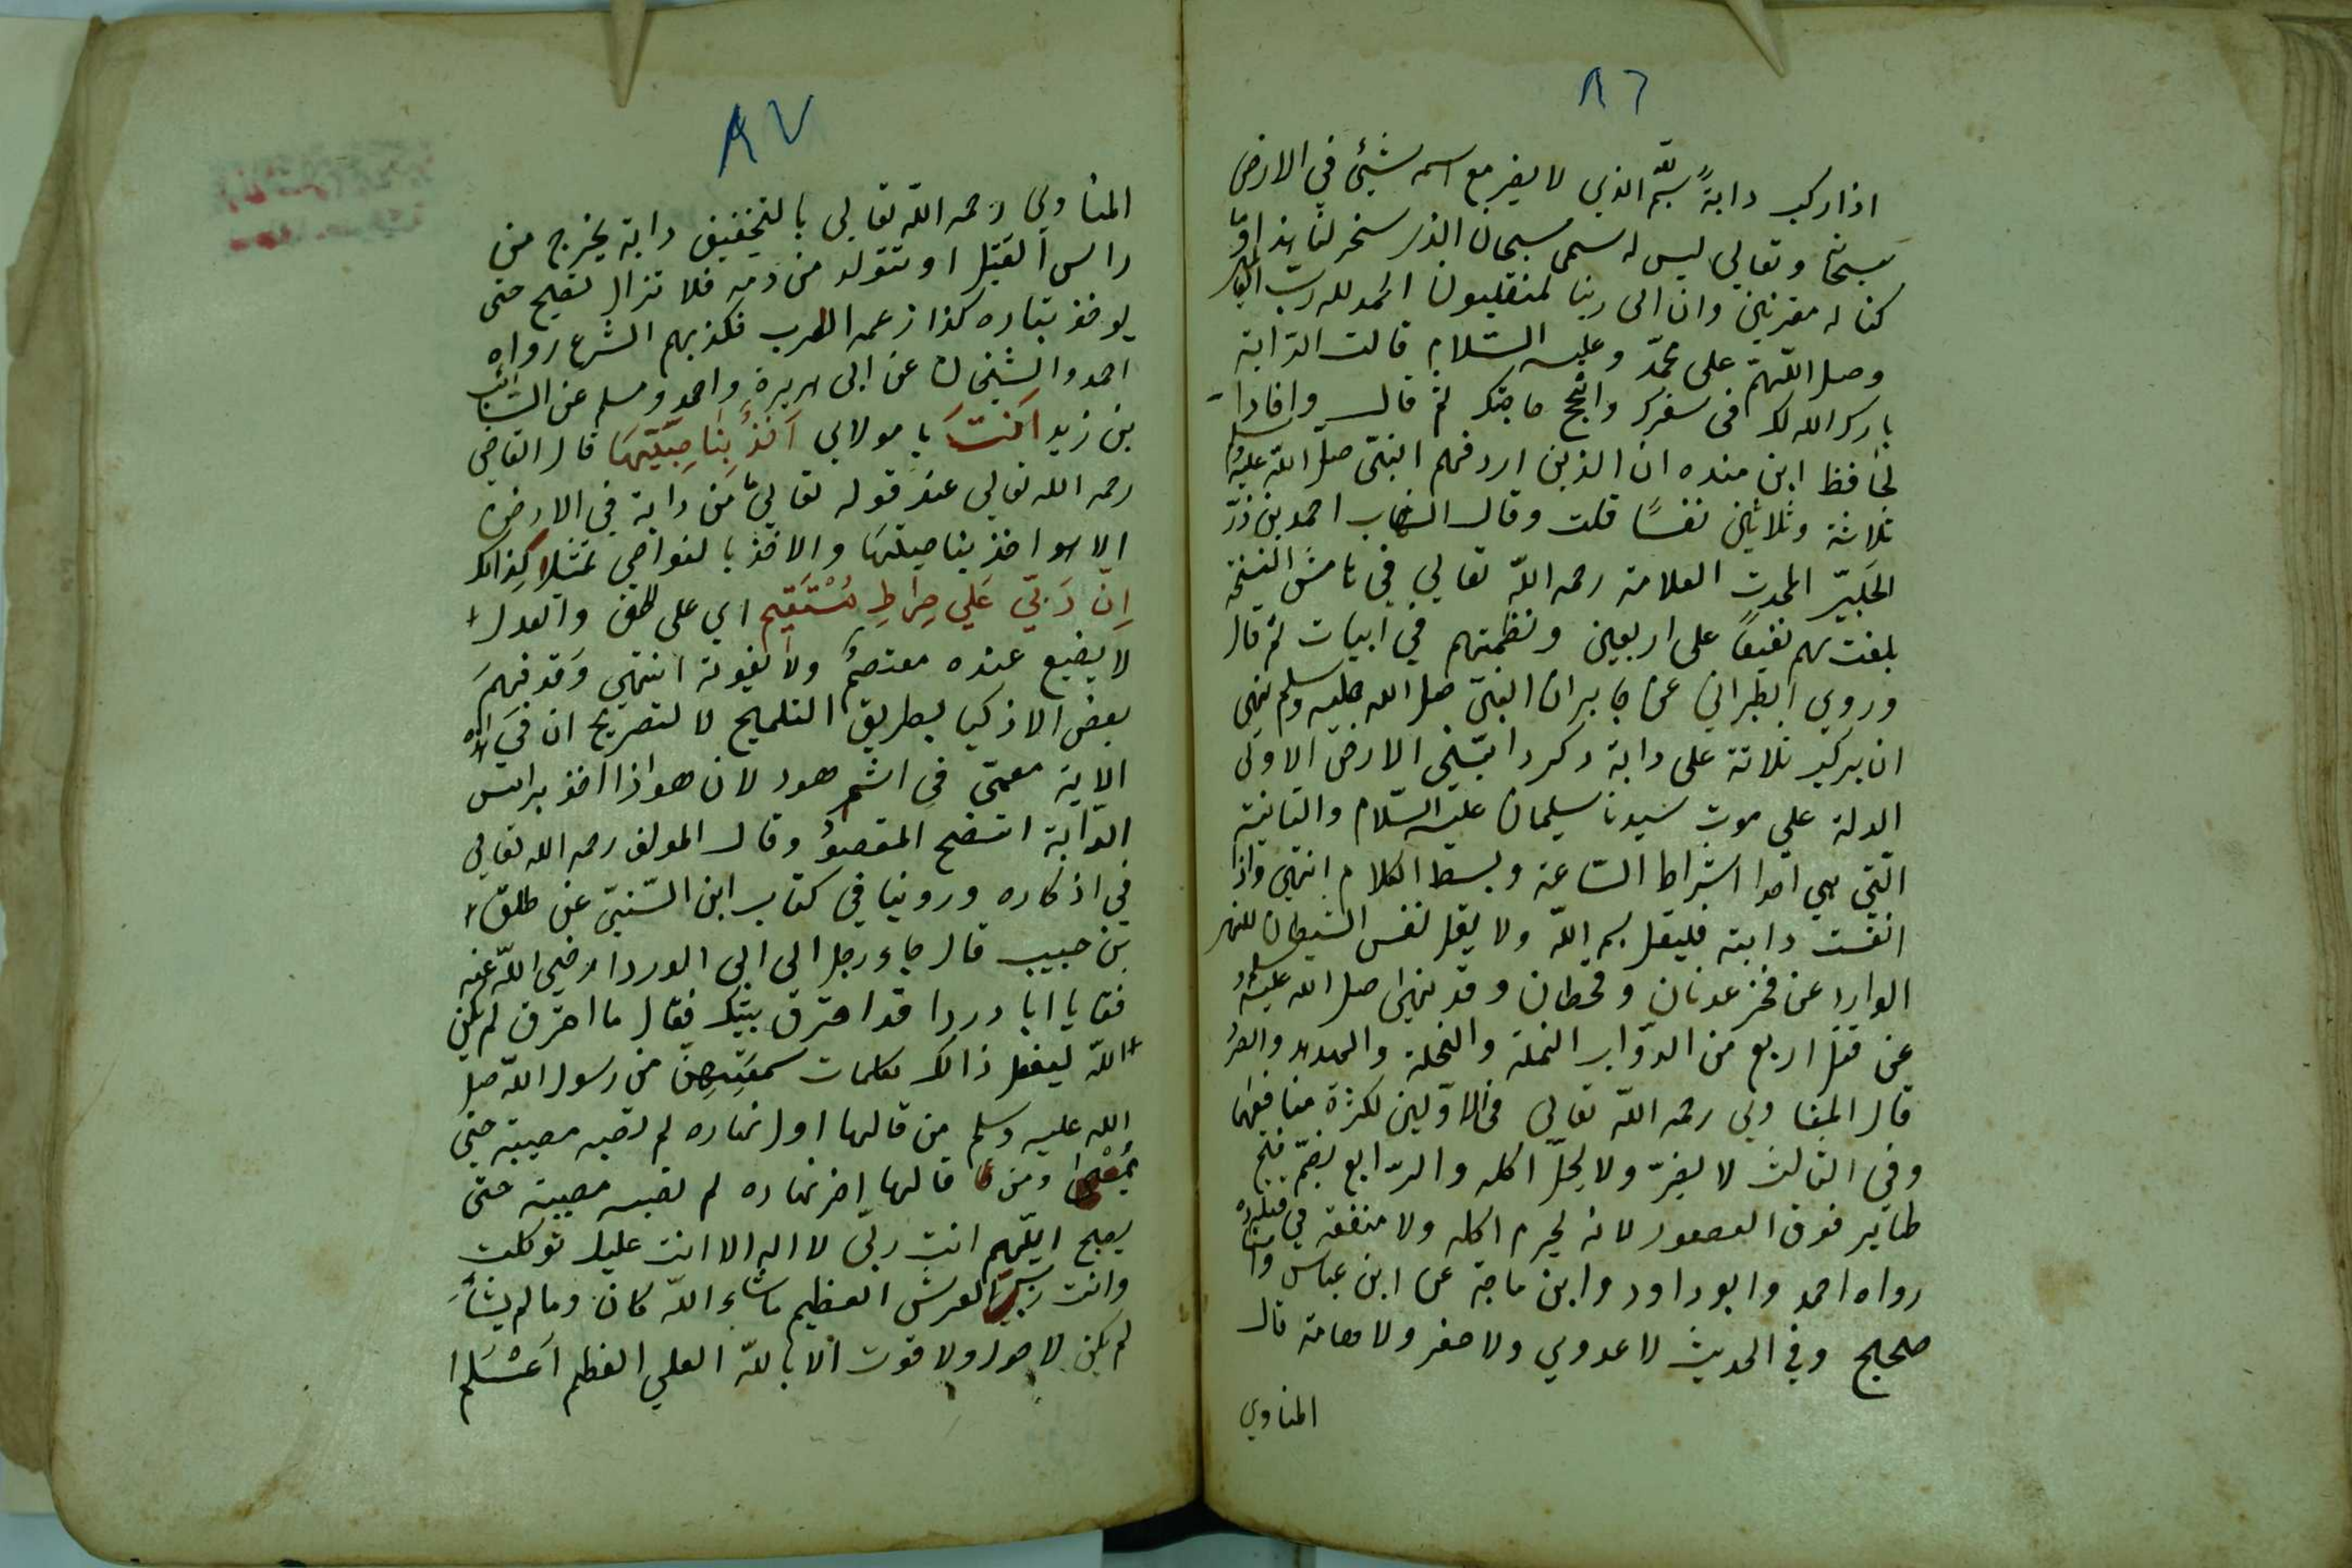 ٨٦
اذا ركب دابةً بسم اللّه الذي لا يضر مع اسمه شيئ في الارض
سبحانه وتعالي ليس له سمي سبحان الذي سخر لنا هذا وما
كنا له مقرنين وانا الى ربنا لمنقلبون الحمد لله رب العالمين
وصل اللّهمّ على محمّد وعليه السّلام قالت الدّابة
بارك الله لك في سفرك وانجح حاجتك ثم قال وافادا
لحافظ ابن منده ان الذين اردفهم النبيّ صل اللّه عليه وسلم
ثلاثة وثلاثين نفسًا قلت وقال الشهاب احمد بن ذرّ
الحلبيّ المحدث العلامة رحمه اللّه تعالي في هامش النسخة
بلغت بهم نفيفًا على اربعين ونظمتهم في ابيات ثم قال
وروي الطبراني عن جابر ان النبيّ صل الله عليه وسلم نهى
ان يركب ثلاثة على دابة ذكر دابّتين الارض الاولى
الدلة علي موت سيدنا سليمان عليه السّلام والثانية
التّي هي احدا اشراط السّاعة وبسط الكلام انتهى واذا
انفست دابته فليقل بسم اللّه ولا يقل نفس الشيطان للنهر
الوارد عن فخز عدنان وقحطان وقد نهى صل الله عليه وسلم
عن قتل اربع من الدوّاب النملة والنحلة والهدهد والصرد
قال المناوي رحمه اللّه تعالى في الاوّلين لكثرة منافعها
وفي الثالث لا يضرّ ولا يحلّ اكله والرّابع بضمّ ففتح
طاير فوق العصفور لانه يحرم اكله ولا منفعة في قتله
رواه احمد وابو داود وابن ماجة عن ابن عباس
صحيح وفي الحديث لا عدوي ولا صفر ولا هامة قال
المناوي
٨٧
المناوي رحمه اللّه تعالي بالتخفيف دابة يخرج من
راس القتيل او تتولد من دمه فلا تزال تصيح حتى
يوخذ بثاره كذا زعمه العرب فكذبهم الشرع رواه
احمد والشيخان عن ابي هريرة واحمد ومسلم عن السّائب
بن زيد اَنْتَ يا مولاي آخذٌ بِنَاصِيَتِهَا قال القاضي
رحمه الله تعالي عند قوله تعاليّ من دابة في الارض
الا هو اخذ بناصيتها والاخذ بالنواصي تمثيلا كذالك
اِنّ رَبّيِ عَليَ صِراطِ مُسْتَقِيم اي على الحق والعدل
لا يضيع عنده معتصمٌ ولا يفوته انتهي وقد فهم
بعض الاذكيا بطريق التلميح لا لتصريح ان في هذه
الاية معمّي في اسم هود لان هو اذا اخذ براس
الدّابة اتضح المقصودُ وقال المولف رحمه الله تعالي
في اذكاره وروينا في كتاب ابن السّنيّ عن طلق
بن حبيب قال جاء رجل الى ابي الدردا رضي اللّه عنه
فقا يا ابا دردا قد احترق بيتك فقال ما احترق لم يكن
اللّه ليفعل ذالك بكلمات سمعتهن من رسول اللّه صل
الله عليه وسلم من قالها اول نهاره لم تصبه مصيبة حتى
يُمْسِي ومن قالها اخر نهاره لم تصبه مصيبة حتى
يصبح اللّهم انت ربّي لا اله الا انت عليك توكلت
وانت ربّ العرش العظيم ما شاء اللّه كان وما لم يشأ
لم يكن لا حول ولا قوت الا باللّه العلي العظيم اَعْـلَم